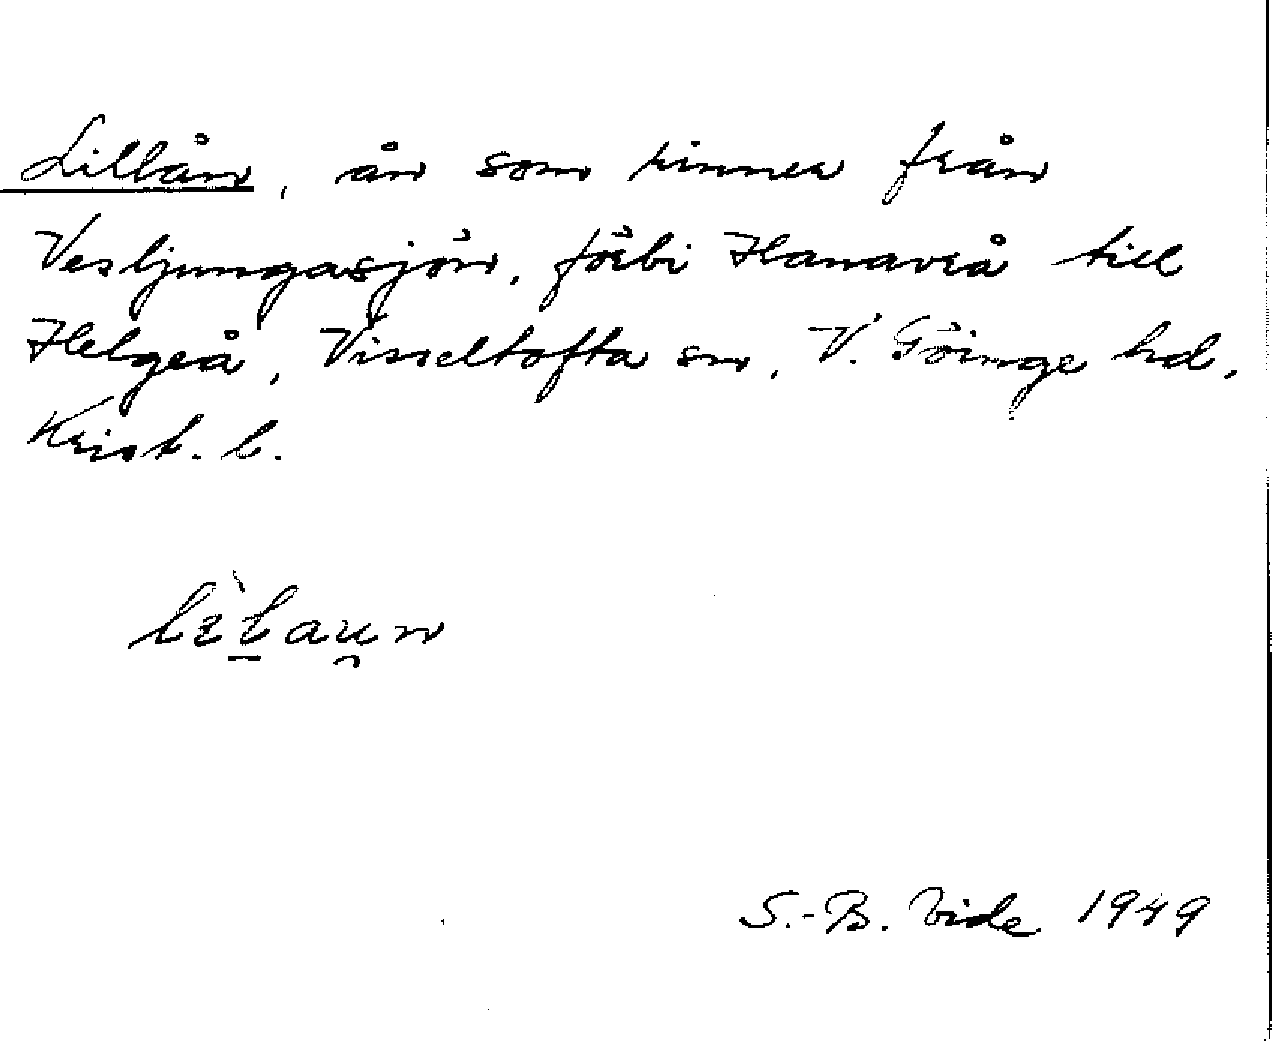 Lillån, ån som rinner från
Vesljungasjön, förbi Hanavrå till
Helgeå, Visseltofta sn, V. Göinge hd,
Krist. l.
S.-B. Vide 1949